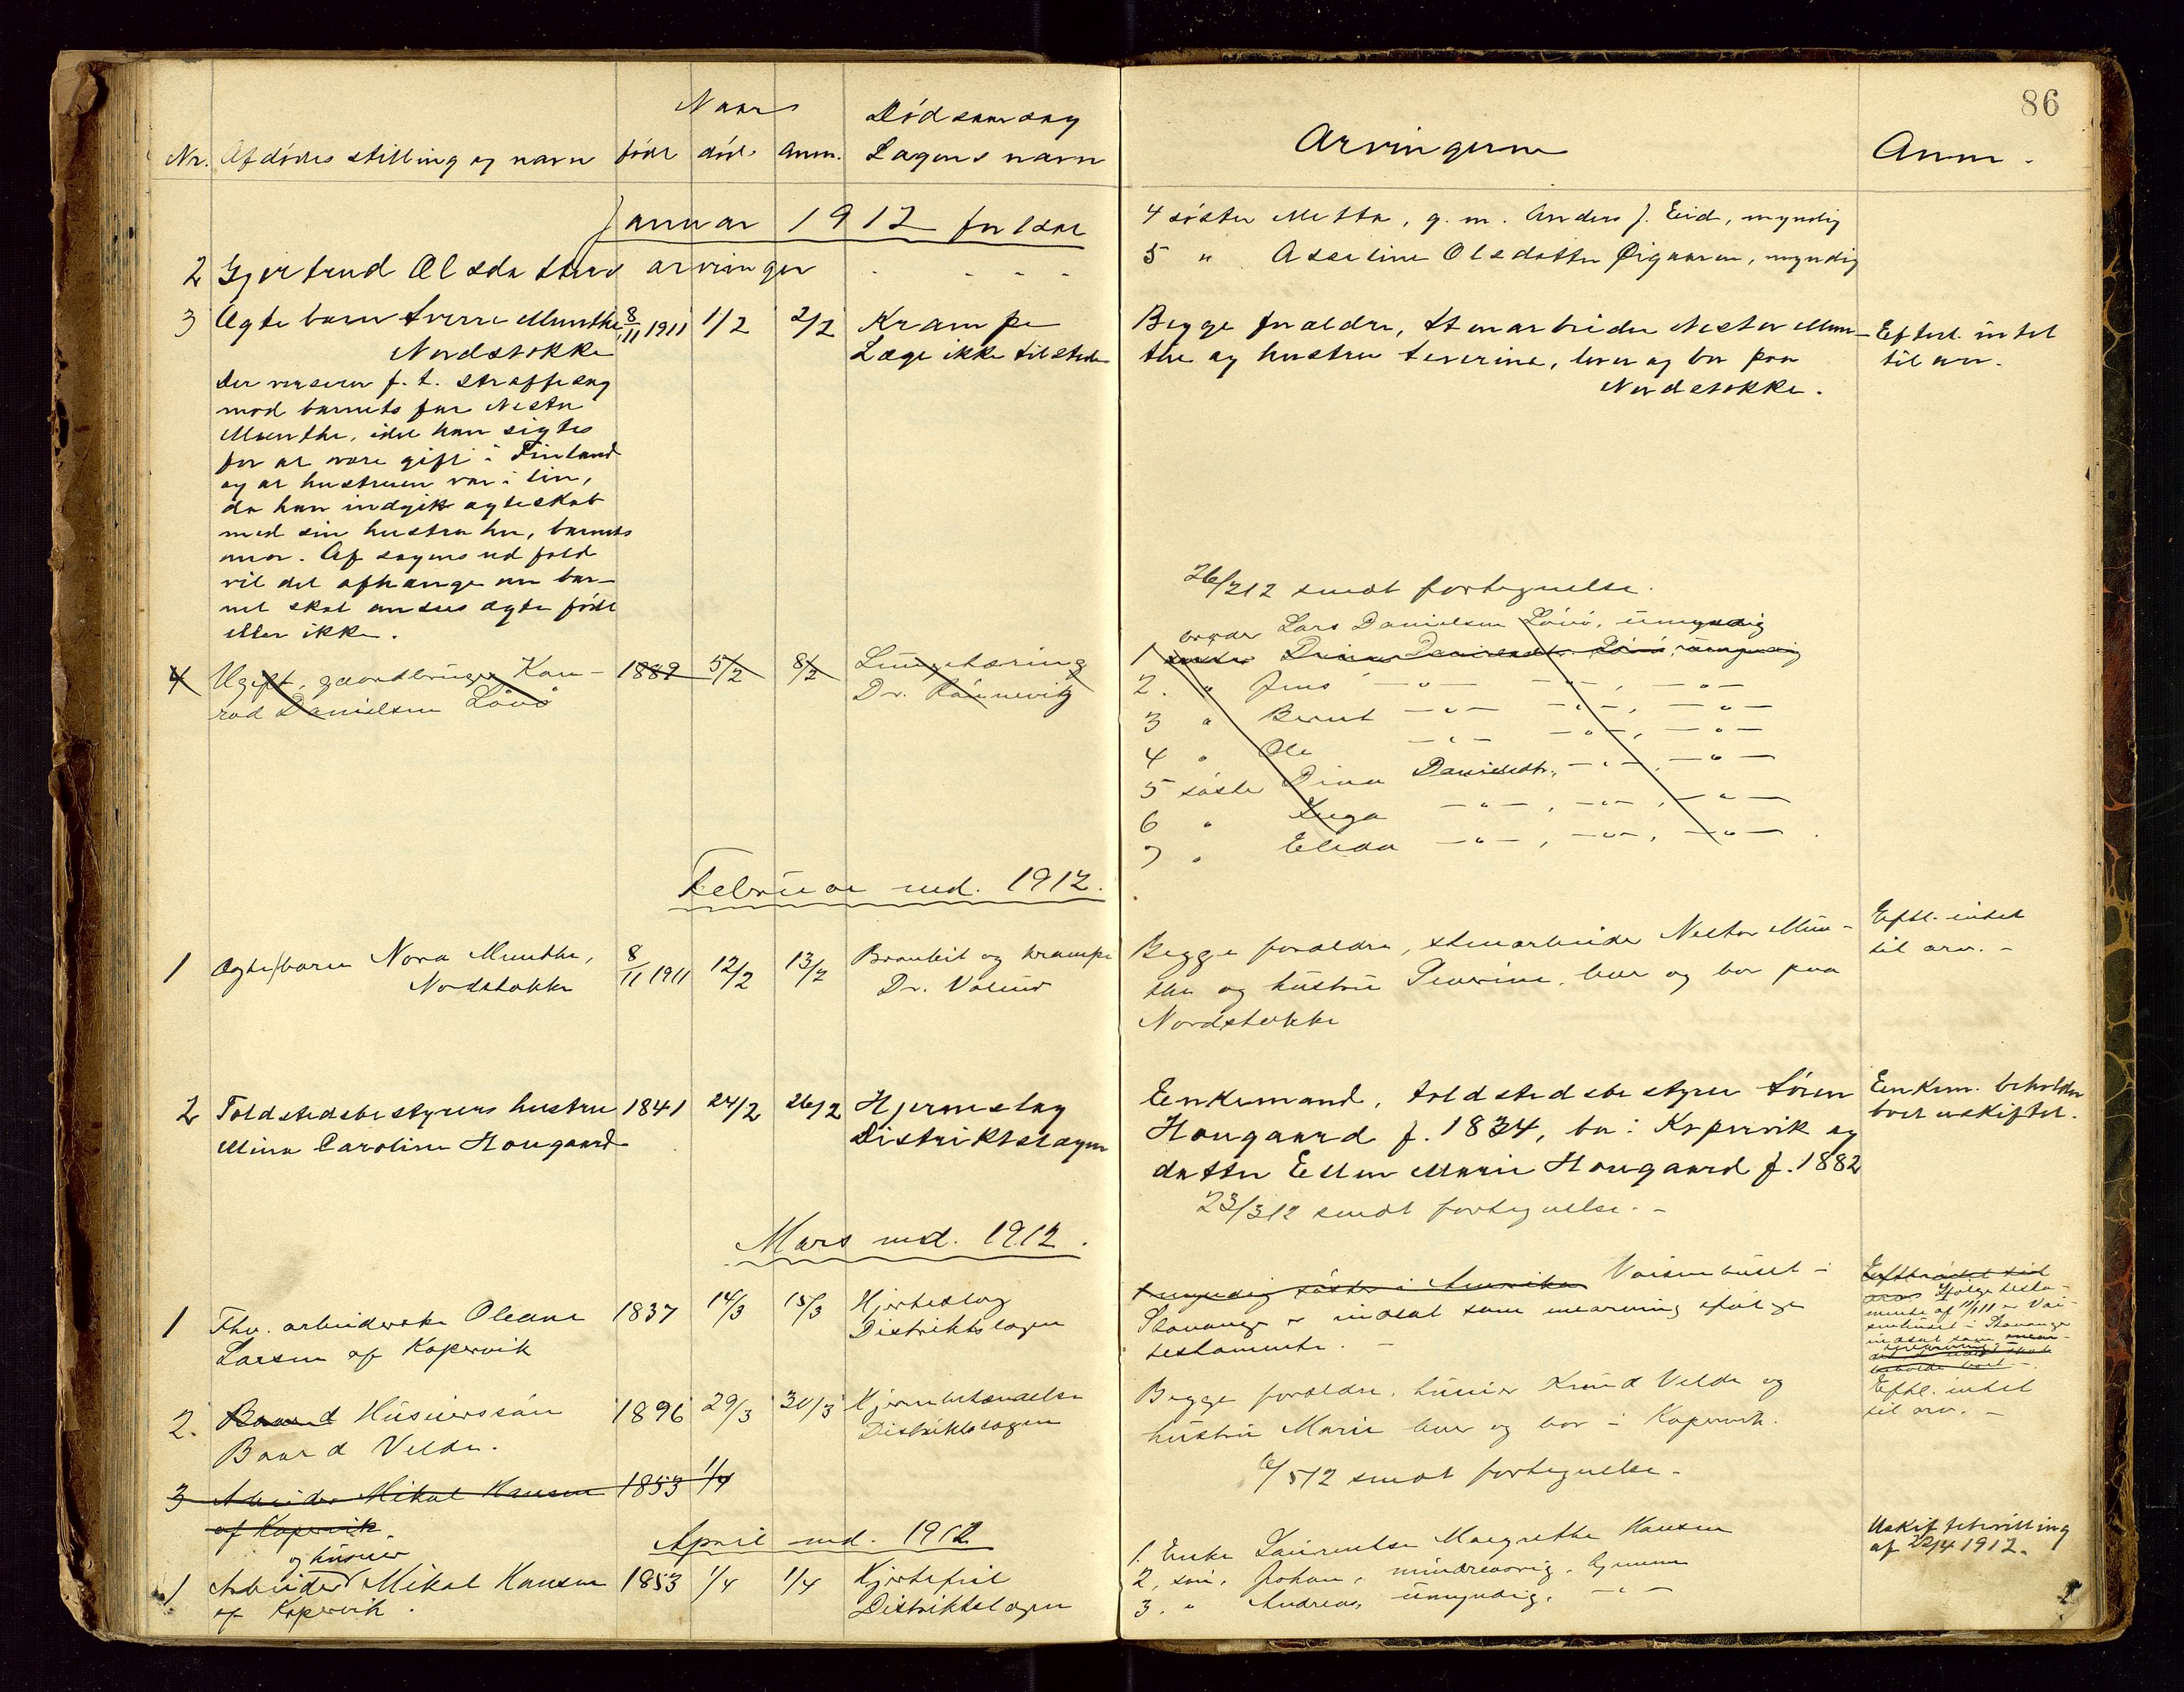 Naar
Dødsaarsag
Nr. Afdødes stilling og navn født død anm. Lægens navn
Januar 1912 fortsat
2 Gjertrud Olsdatters arvinger . - - -
3 Ægte barn Sverre Munthe 8/11 1911 1/2 2/2 Krampe
Nordstokke Læge ikke tilstede
Der verserer f. t. straffesag
mod barnets far Nestor
Munthe, idet han sigtes
for at være gift i Finland
og at hustruen var i live,
da han indgik ægteskab
med sin hustru her, barnets
mor. Af sagens udfald
vil det afhænge om bar-
net skal ansees ægte født
eller ikke.
4 Ugift gaardbruger Kon- 1889 5/2 8/2 Lungetæring
rad Danielsen Dr. Rønnevig
Februar md. 1912.
1 Ægte barn Nora Munthe, 8/11 1911 12/2 13/2 Bronkit og krampe
Nordstokke Dr.
2 Toldstedsbestyrers hustru 1841 24/2 26/2 Hjerneslag
Mina Caroline Hougaard Distriktslægen
Mars md. 1912.
1 Fhv. arbeiderske Oleane 1837 14/3 15/3 Hjerteslag
Larsen af Kopervik Distriktslægen
2. Baard Husmerssøn 1896 29/3 30/3 Hjernebetændelse
Baard Velde. Distriktslægen
3 Arbeider Mikal Hansen 1853 1/4
af Kopervik.
April md. 1912
og husmer
1 Arbeider Mikal Hansen 1853 1/4 1/4 Hjertefeil
af Kopervik. Distriktslægen
86
Arvingerne Anm.
4 søster Metta, g. m. Anders J. Eid, myndig
5 " Asseline Olsdatter Øigaarden, myndig
Begge forældre, stenarbeider Nestor Mun- Efterl. intet
the og hustru Severine, lever og bor paa til arv.
Nordstokke.
26/2 12 sendt fortegnelse.
broder Lars Danielsen umyndig
1 søster
2. " Jens —"— —"—, —"—
3 " Bernt —"— —"—, —"—
4 " Ole —"— —"—, —"—
5 søster Dina Danielsdtr., —"—, —"—
6 " Inga —"—, —"—, —"—
7 " Elida —"—, —"—, —"—
Begge forældre, stenarbeider Nestor Mun- Efterl. intet
the og hustru Severine, lever og bor paa til arv. -
Nordstokke
Enkemand, toldstedsbestyrer Søren Enkem. beholder
Hougaard f. 1834, bor i Kopervik og boet uskiftet.
datter Ellen Marie Hougaard f. 1882
23/3 12 sendt fortegnelse. -
umyndig søster i Amerika Vaisenhuset i
Stavanger er indsat som enearving ifølge
testamente. -
Efterl. intet til
arv. Ifølge testa-
mente af 11/1 11 er Vai-
senhuset i Stavanger
indsat som
enearving
Begge forældre, husmer Knud Velde og Efterl. intet
hustru Marie lever og bor i Kopervik. til arv. -
6/5 12 sendt fortegnelse. -
1. Enke Laurentse Margrethe Hansen Uskiftebevilling
2. søn, Johan, mindreaarig, hjemme af 22/4 1912.
3. " Andreas, umyndig, —"—